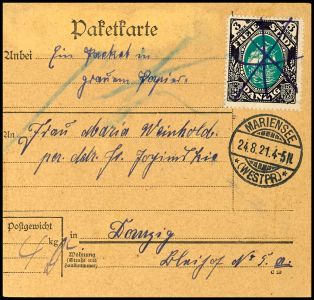 Paketkarte
3 FREIE STADT 3
DANZIG
Anbei Ein Packet in
grauem Papier.
An Frau Maria Weinhold.
per. adr. Fr.
MARIENSEE
24.8.21.4-5N.
*(WESTPR)*
Postgewicht
kg
in Danzig
Wohnung
(Straße und
Hausnummer)
Bleihof No 5. a.